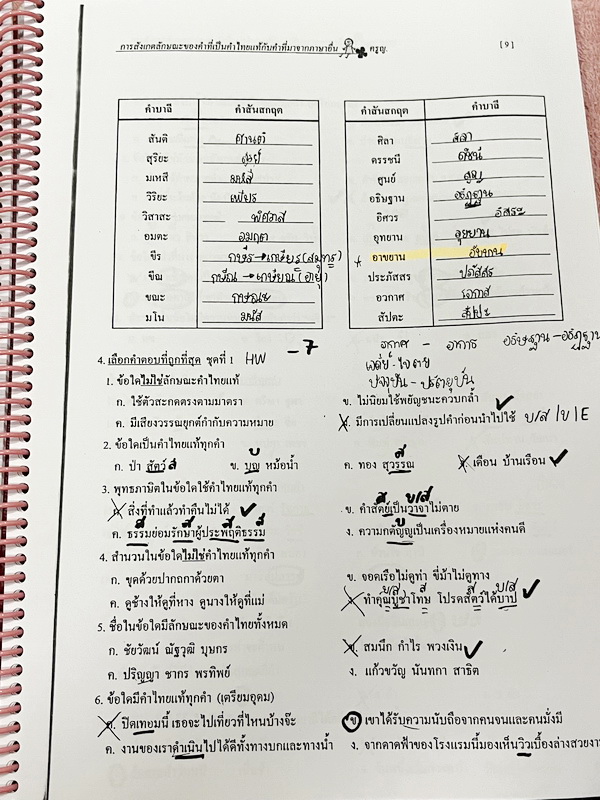 การสังเกตลักษณะของคำที่เป็นคำไทยแท้กับคำที่มาจากภาษาอื่น ครูญ. [9]
คำบาลี คำสันสกฤต
สันติ ศานติ
สุริยะ สูรย์
มเหสี มหิสี
วิริยะ เพียร
วิสาสะ พิศวาส
อมตะ อมฤต
ขีร กษีร→เกษียร(สมุทร)
ขีณ กษีณ→เกษียณ(อายุ)
ขณะ กษณะ
มโน มนัส
คำสันสกฤต คำบาลี
ศิลา สิลา
ดรรชนี ดัชนี
ศูนย์ สูญ
อธิษฐาน อธิฏฐาน
อิศวร อิสระ
อุทยาน อุยยาน
อาขยาน
ประภัสสร ปภัสสร
อวกาศ โอกาส
สัปตะ
4. เลือกคำตอบที่ถูกที่สุด ชุดที่ 1 HW -7
1. ข้อใดไม่ใช่ลักษณะคำไทยแท้
ก. ใช้ตัวสะกดตรงตามมาตรา ข. ไม่นิยมใช้พยัญชนะควบกล้ำ
ค. มีเสียงวรรณยุกต์กำกับความหมาย ง. มีการเปลี่ยนแปลงรูปคำก่อนนำไปใช้ บ/ส /ข/E
2. ข้อใดเป็นคำไทยแท้ทุกคำ
ก. ป่า สัตว์ ส ข. บุญ หม้อน้ำ ค. ทอง สุวรรณ ง. เดือน บ้านเรือน
3. พุทธภาษิตในข้อใดใช้คำไทยแท้ทุกคำ
ก. สิ่งที่ทำแล้วทำคืนไม่ได้ ข. คำสัตย์เป็นวาจาไม่ตาย
ค. ธรรมย่อมรักษาผู้ประพฤติธรรม ง. ความกตัญญูเป็นเครื่องหมายแห่งคนดี
4. สำนวนในข้อใดไม่ใช่คำไทยแท้ทุกคำ
ก. ขุดด้วยปากถากด้วยตา ข. จอดเรือไม่ดูท่า ขี่ม้าไม่ดูทาง
ค. ดูช้างให้ดูที่หาง ดูนางให้ดูที่แม่ ง. ทำคุณบูชาโทษ โปรดสัตว์ได้บาป
5. ชื่อในข้อใดมีลักษณะของคำไทยทั้งหมด
ก. ชัยวัฒน์ ณัฐวุฒิ บุษกร ข. สมนึก กำไร พวงเงิน
ค. ปริญญา ชากร พรทิพย์ ง. แก้วขวัญ นันทกา สาธิต
6. ข้อใดมีคำไทยแท้ทุกคำ (เตรียมอุดม)
ก. ปิดเทอมนี้เธอจะไปเที่ยวที่ไหนบ้างจ๊ะ ข เขาได้รับความนับถือจากคนจนและคนมั่งมี
ค. งานของเราดำเนินไปได้ดีทั้งทางบกและทางน้ำ ง. จากดาดฟ้าของโรงแรมนี้มองเห็นวิวเบื้องล่างสวยงาม